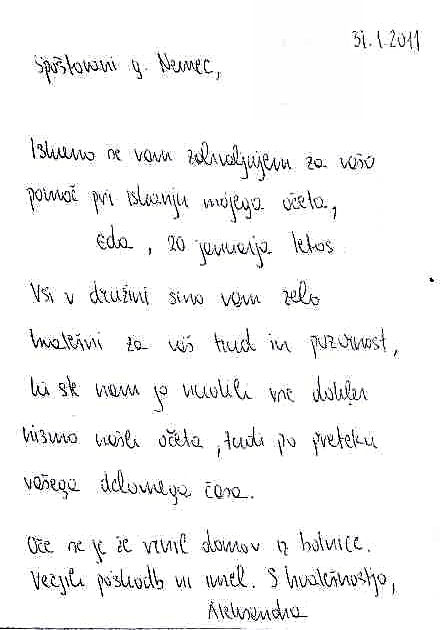 31.1.2011
Spoštovani g. Nemec,
Iskreno se vam zahvaljujem za vašo
pomoč pri iskanju mojega očeta,
Eda, 20 januarja letos.
Vsi v družini smo vam zelo
hvaležni za vaš trud in pozornost,
ki ste nam jo nudili vse dokler
nismo našli očeta, tudi po preteku
vašega delovnega časa.
Oče se je že vrnil domov iz bolnice.
Večjih poškodb ni imel. S hvaležnostjo,
Aleksandra